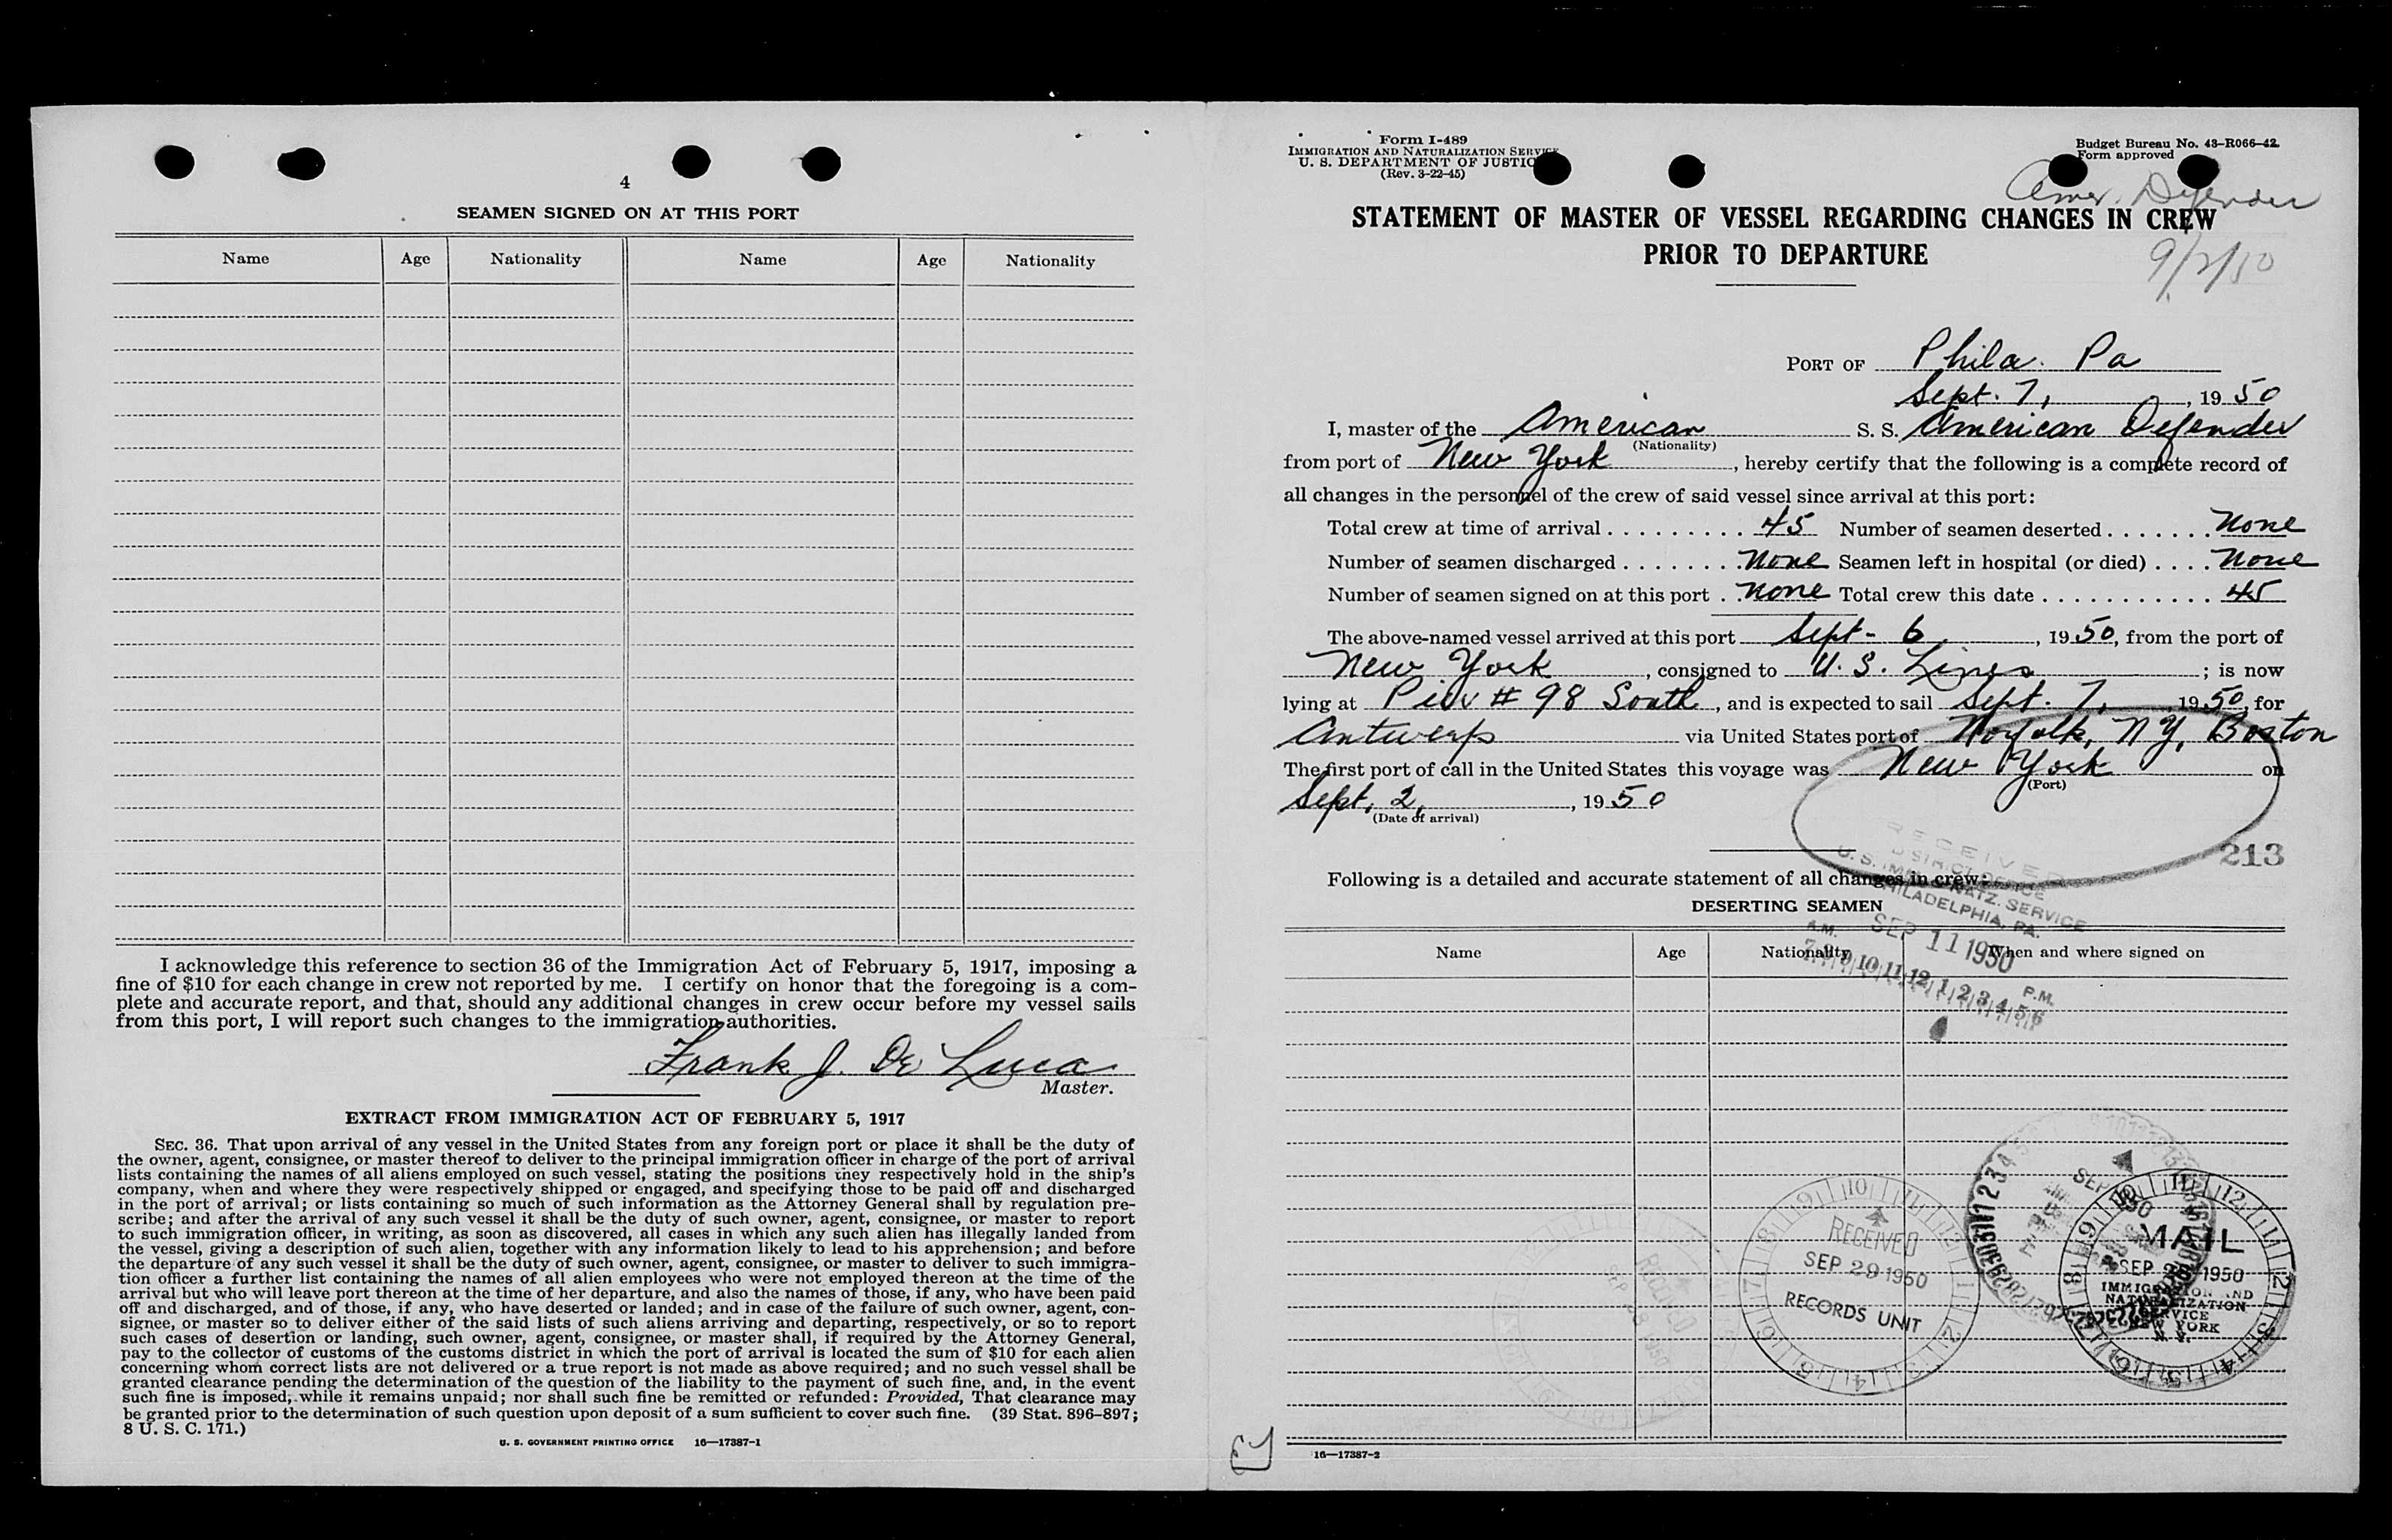 4
SEAMEN SIGNED ON AT THIS PORT
Name Age Nationality Name Age Nationality
I acknowledge this reference to section 36 of the Immigration Act of February 5, 1917, imposing a
fine of $10 for each change in crew not reported by me. I certify on honor that the foregoing is a com-
plete and accurate report, and that, should any additional changes in crew occur before my vessel sails
from this port, I will report such changes to the immigration authorities.
Frank J. De Luca
Master.
EXTRACT FROM IMMIGRATION ACT OF FEBRUARY 5, 1917
SEC. 36. That upon arrival of any vessel in the United States from any foreign port or place it shall be the duty of
the owner, agent, consignee, or master thereof to deliver to the principal immigration officer in charge of the port of arrival
lists containing the names of all aliens employed on such vessel, stating the positions they respectively hold in the ship's
company, when and where they were respectively shipped or engaged, and specifying those to be paid off and discharged
in the port of arrival; or lists containing so much of such information as the Attorney General shall by regulation pre-
scribe; and after the arrival of any such vessel it shall be the duty of such owner, agent, consignee, or master to report
to such immigration officer, in writing, as soon as discovered, all cases in which any such alien has illegally landed from
the vessel, giving a description of such alien, together with any information likely to lead to his apprehension; and before
the departure of any such vessel it shall be the duty of such owner, agent, consignee, or master to deliver to such immigra-
tion officer a further list containing the names of all alien employees who were not employed thereon at the time of the
arrival but who will leave port thereon at the time of her departure, and also the names of those, if any, who have been paid
off and discharged, and of those, if any, who have deserted or landed; and in case of the failure of such owner, agent, con-
signee, or master so to deliver either of the said lists of such aliens arriving and departing, respectively, or so to report
such cases of desertion or landing, such owner, agent, consignee, or master shall, if required by the Attorney General,
pay to the collector of customs of the customs district in which the port of arrival is located the sum of $10 for each alien
concerning whom correct lists are not delivered or a true report is not made as above required; and no such vessel shall be
granted clearance pending the determination of the question of the liability to the payment of such fine, and, in the event
such fine is imposed, while it remains unpaid; nor shall such fine be remitted or refunded: Provided, That clearance may
be granted prior to the determination of such question upon deposit of a sum sufficient to cover such fine. (39 Stat. 896–897;
8 U. S. C. 171.)
U. S. GOVERNMENT PRINTING OFFICE 16—17387-1
Form I-489
IMMIGRATION AND NATURALIZATION SERVICE
U. S. DEPARTMENT OF JUSTIC
(Rev. 3-22-45)
Budget Bureau No. 43–R066–42
Form approved
Amer. Defender
STATEMENT OF MASTER OF VESSEL REGARDING CHANGES IN CREW
PRIOR TO DEPARTURE
9/2/50
PORT OF Phila. Pa
Sept. 7, , 19 50
I, master of the American S. S. American Defender
(Nationality)
from port of New York , hereby certify that the following is a complete record of
all changes in the personnel of the crew of said vessel since arrival at this port:
Total crew at time of arrival . . . . . . . . . 45 Number of seamen deserted . . . . . . . None
Number of seamen discharged . . . . . . . . None Seamen left in hospital (or died) . . . . None
Number of seamen signed on at this port . . None Total crew this date . . . . . . . . . . . . 45
The above-named vessel arrived at this port Sept - 6 , 19 50, from the port of
New York , consigned to U. S. Lines ; is now
lying at Pier # 98 South , and is expected to sail Sept. 7, , 19 50, for
Antwerp via United States port of Norfolk, NY, Boston
The first port of call in the United States this voyage was New York on
(Port)
Sept. 2, , 19 50
(Date of arrival)
213
RECEIVED
DISTRICT OFFICE
U. S. IMM. & NATZ. SERVICE
PHILADELPHIA, PA.
SEP 11 1950
A.M. 7 8 9 10 11 12 1 2 3 4 5 6 P.M.
Following is a detailed and accurate statement of all changes in crew:
DESERTING SEAMEN
Name Age Nationality When and where signed on
RECEIVED
SEP 28 1950
RECEIVED
SEP 29 1950
RECORDS UNIT
MAIL
SEP 1950
IMMIGRATION AND
NATURALIZATION
SERVICE
NEW YORK
N. Y.
16—17387-2